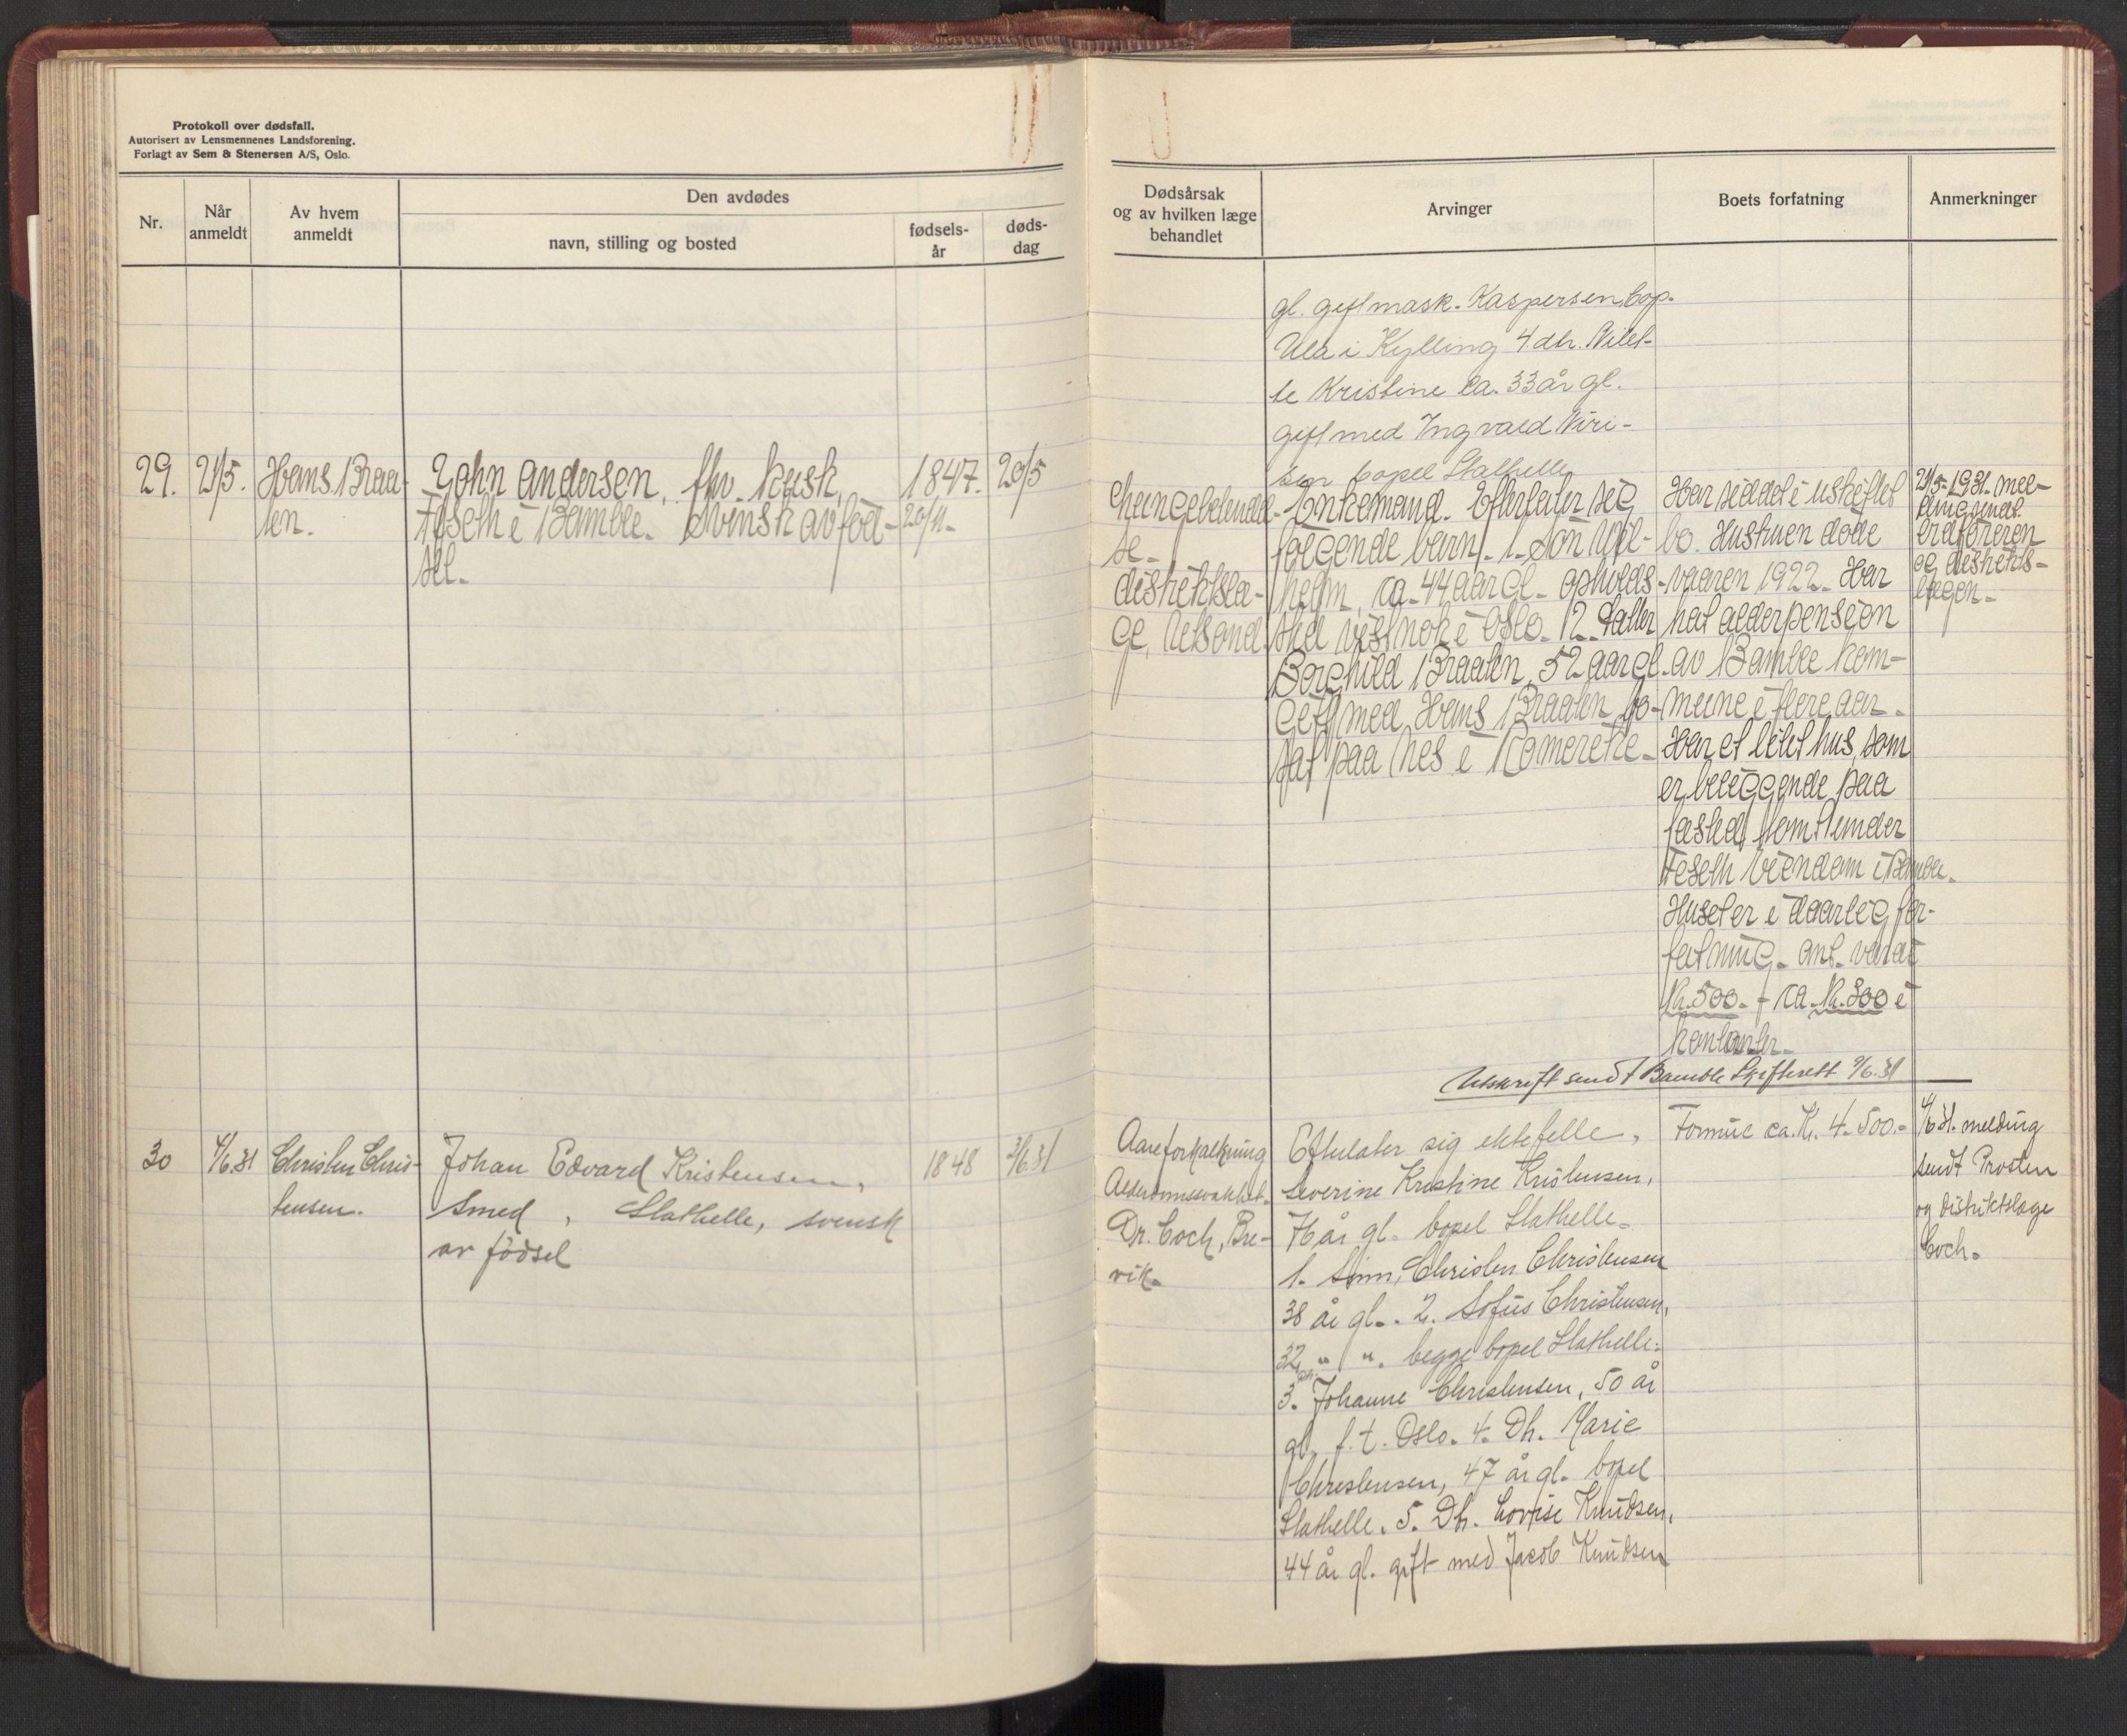 Protokoll over dødsfall.
Autorisert av Lensmennenes Landsforening.
Forlagt av Sem & Stenersen A/S, Oslo.
Nr.
Når
anmeldt
Av hvem
anmeldt
Den avdødes
navn, stilling og bosted
fødsels-
år
døds-
dag
29.
21/5.
Hans Braa-
ten.
John Andersen, fhv. kusk,
Feseth i Bamble. Svensk av fød-
sel.
1847.
20/11-
20/5
30
4/6.31
Christen Chris-
tensen.
Johan Edvard Kristensen,
Smed, Stathelle, svensk
av fødsel
1848
3/6.31
Dødsårsak
og av hvilken læge
behandlet
Arvinger
Boets forfatning
Anmerkninger
gl. gift mask. Kaspersen, bop.
Ula i Kylling 4. dtr.
te Kristine ca. 33 år gl.
gift med Ingvald
sen bopel Stathelle
lungebetendel-
se-
distriktslæ-
ge,
Enkemand. Efterlater sig
følgende barn. 1. Søn Wil-
helm, ca. 44 aar gl. opholds-
sted vistnok i Oslo. 2. Datter
Borghild Braaten, 52 aar gl.
gift med Hans Braaten bo-
sat paa Nes i
Har siddet i uskiftet
bo. Hustruen døde
vaaren 1922. Har
hat alderpension
av Bamble kom-
mune i flere aar.
Har et litet hus, som
er beliggende paa
fæstet tomt under
Feseth eiendom i Bamble.
Huset er i daarlig for-
fatning. Ant. verdi
Kr. 500.- + ca. Kr. 300 i
kontanter.
21/5-1931. mel-
ding sendt
og distrikts-
lægen.
Utskrift sendt Bamble Skifterett 9/6.31
Aareforkalkning
Alderdomssvakhet.
Dr. Coch, Bre-
vik.
Efterlater sig ektefelle,
Severine Kristine Kristensen,
76 år gl. bopel Stathelle.
1. Sønn, Christen Christensen
38 år gl.. 2. Sofus Christensen,
32 " ". begge bopel Stathelle.
3. Johanne Christensen, 50 år
gl. f.t. Oslo. 4. Dtr. Marie
Christensen, 47 år gl. bopel
Stathelle. 5. Dtr. Lovise Knudsen,
44 år gl. gift med Jacob Knudsen
Formue ca. Kr. 4.500.-
4/6 31. melding
sendt Prosten
og distriktslæge
Coch.